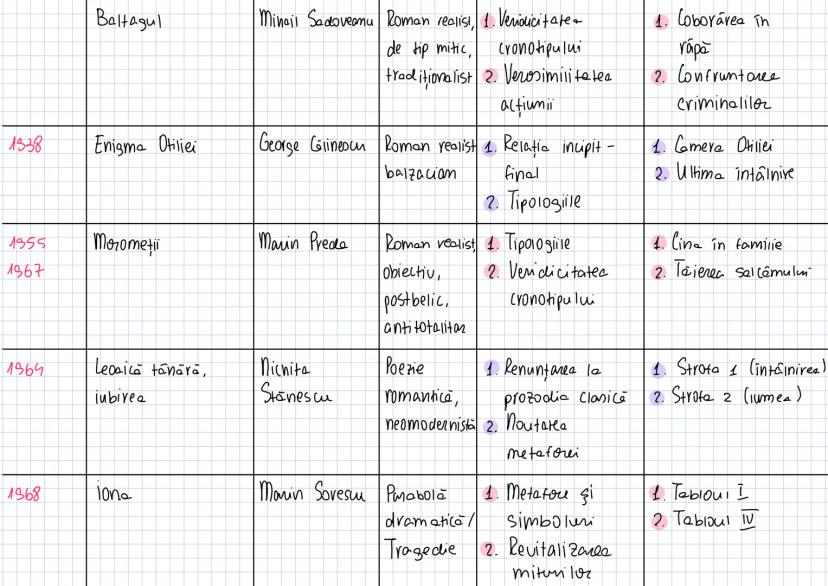 Baltagul Mihail Sadoveanu Roman realist, 1. Veridicitatea 1. Coborârea în
de tip mitic, cronotipului râpă
tradiționalist 2. Verosimilitatea 2. Confruntarea
acțiunii criminalilor
1938 Enigma Otiliei George Călinescu Roman realist 1. Relația incipit - 1. Camera Otiliei
balzacian final 2. Ultima întâlnire
2. Tipologiile
1955 Moromeții Marin Preda Roman realist, 1. Tipologiile 1. Cina în familie
1967 obiectiv, 2. Veridicitatea 2. Tăierea salcâmului
postbelic, cronotipului
antitotalitar
1964 Leoaică tânără, Nichita Poezie 1. Renunțarea la 1. Strofa 1 (întâlnirea)
iubirea Stănescu romantică, prozodia clasică 2. Strofa 2 (lumea)
neomodernistă 2. Noutatea
metaforei
1968 Iona Marin Sorescu Parabolă 1. Metafore și 1. Tabloul I
dramatică/ simboluri 2. Tabloul IV
Tragedie 2. Revitalizarea
miturilor